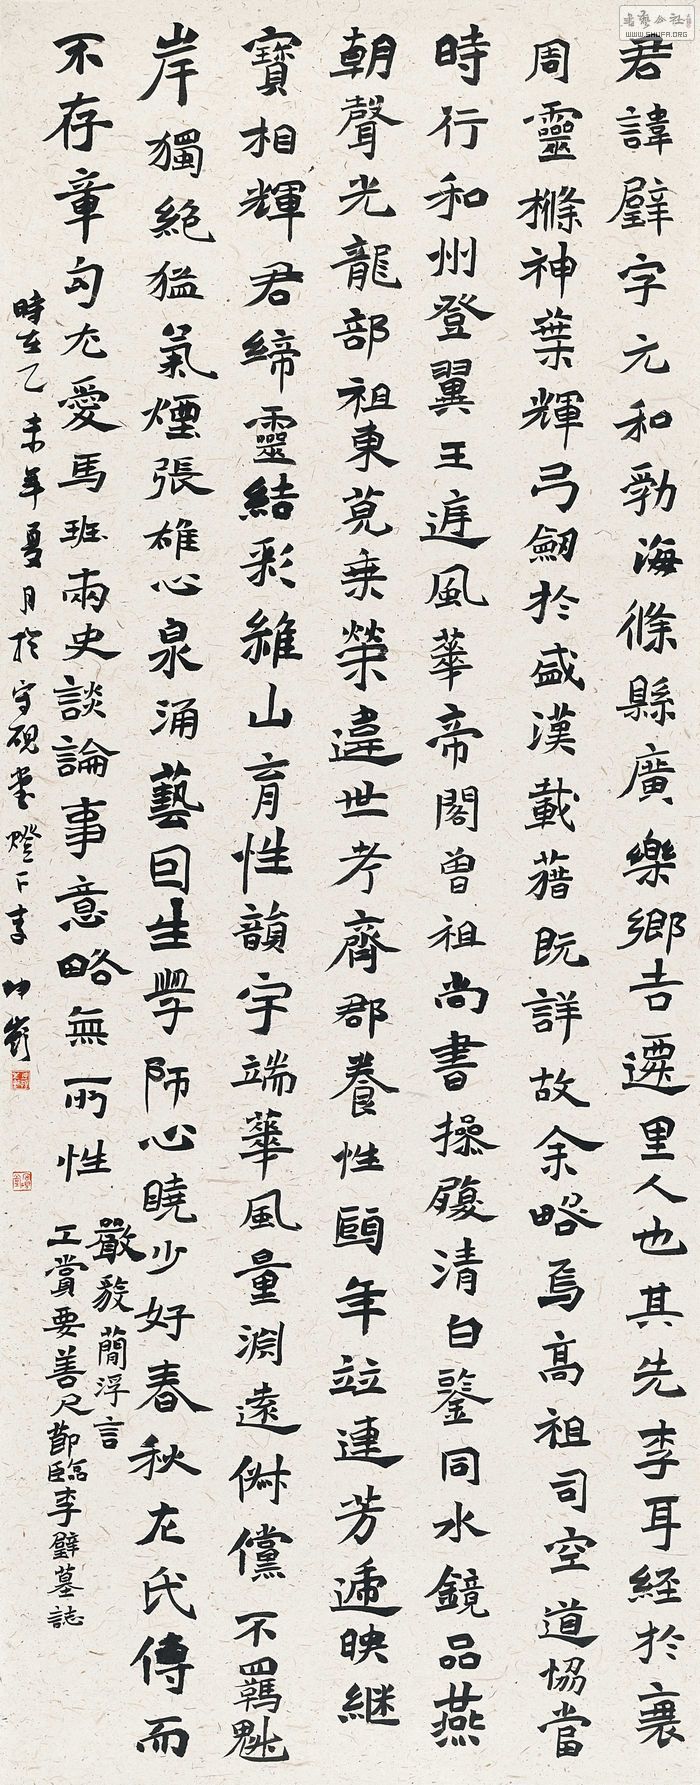 君諱璧字元和勃海條縣廣樂鄉吉遷里人也其先李耳經於衰
周靈櫾神葉輝弓劒於盛漢載藉既詳故余略焉高祖司空道協當
時行和州登翼王遊風華帝閣曾祖尚書操履清白鑒同水鏡品燕
朝聲光龍部祖東莞乘榮違世考齊郡養性頤年竝連芳遞映繼
寶相輝君締靈結彩維山育性韻宇端華風量淵遠俶儻不羈魁
岸獨絕猛氣煙張雄心泉涌藝因生學師心曉少好春秋左氏傳而
不存章句尤愛馬班兩史談論事意略無所性
嚴毅簡浮言
工賞要善尺節臨李璧墓誌
時在乙未年夏月於守硯堂燈下李
書艺公社
WWW.SHUFA.ORG